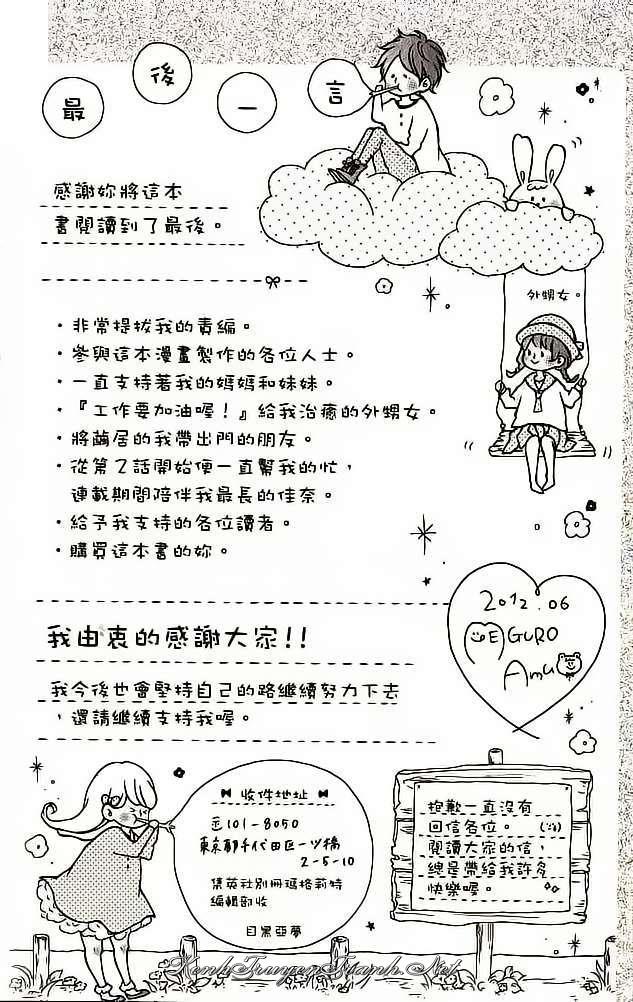 最後一言
感謝妳將這本
書閱讀到了最後。
外甥女。
・非常提拔我的責編。
・參與這本漫畫製作的各位人士。
・一直支持著我的媽媽和妹妹。
・『工作要加油喔！』給我治癒的外甥女。
・將繭居的我帶出門的朋友。
・從第2話開始便一直幫我的忙，
連載期間陪伴我最長的佳奈。
・給予我支持的各位讀者。
・購買這本書的妳。
我由衷的感謝大家!!
我今後也會堅持自己的路繼續努力下去
，還請繼續支持我喔。
2012.06
MEGURO
Amu
收件地址
〒101-8050
東京都千代田区一ツ橋
2-5-10
集英社別冊瑪格莉特
編輯部收
目黑亞夢
抱歉一直沒有
回信各位。
閱讀大家的信，
總是帶給我許多
快樂喔。
KenhTruyenTranh.Net